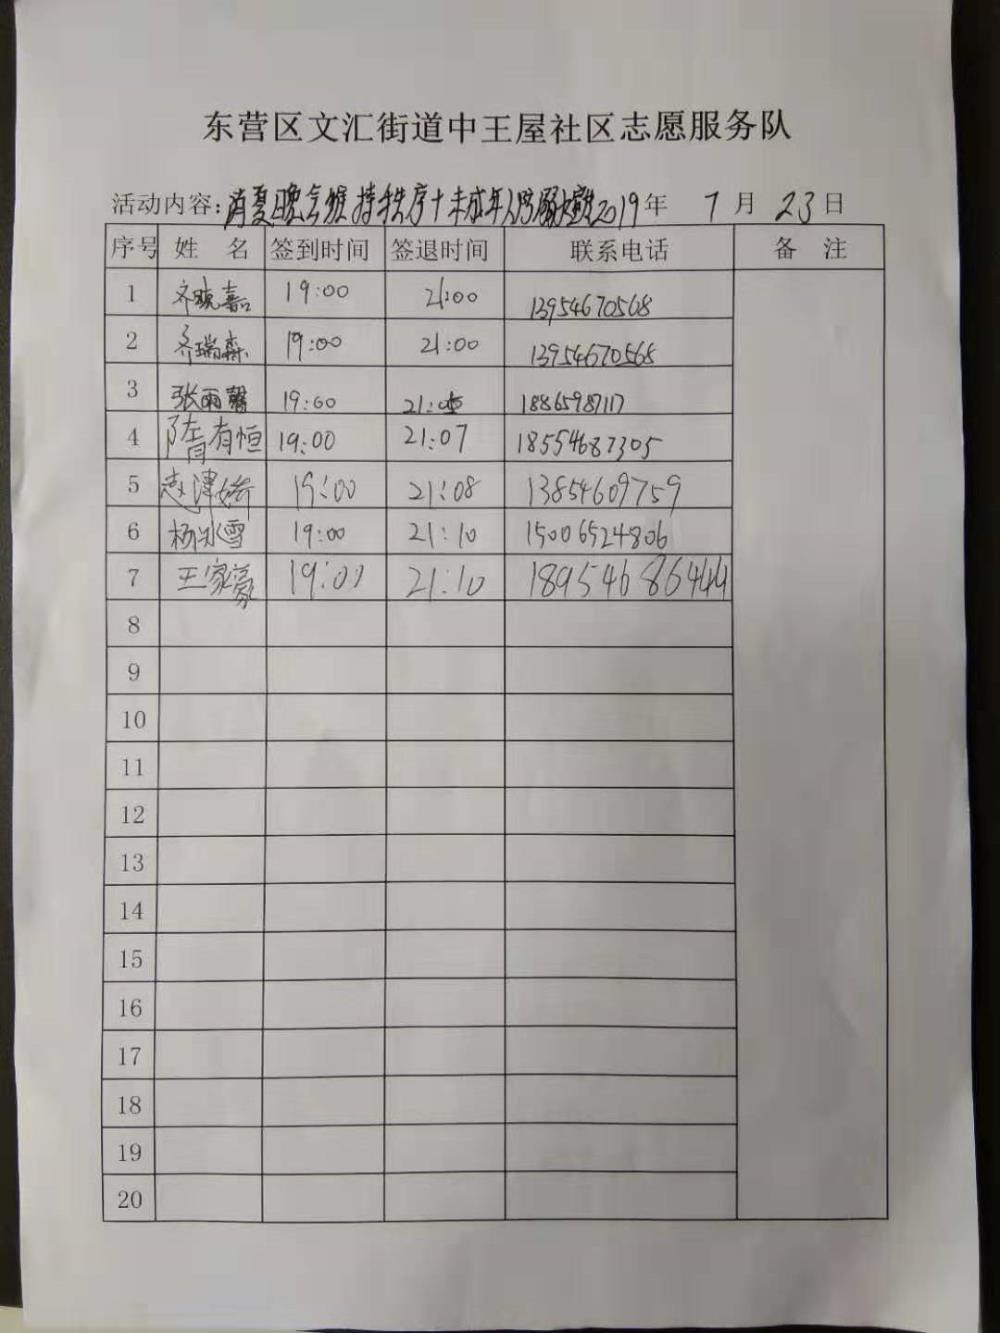 东营区文汇街道中王屋社区志愿服务队
活动内容：消夏晚会维持秩序+未成年人防溺水 2019年 7月 23日
序号 姓名 签到时间 签退时间 联系电话 备注
1 齐晓嘉 19:00 21:00 13954670568
2 齐瑞森 19:00 21:00 13954670568
3 张雨馨 19:00 21:05 18865987117
4 隋有恒 19:00 21:07 18554687305
5 赵津娇 19:00 21:08 13854609759
6 杨冰雪 19:00 21:10 15006524806
7 王家豪 19:01 21:10 18954686444
8
9
10
11
12
13
14
15
16
17
18
19
20